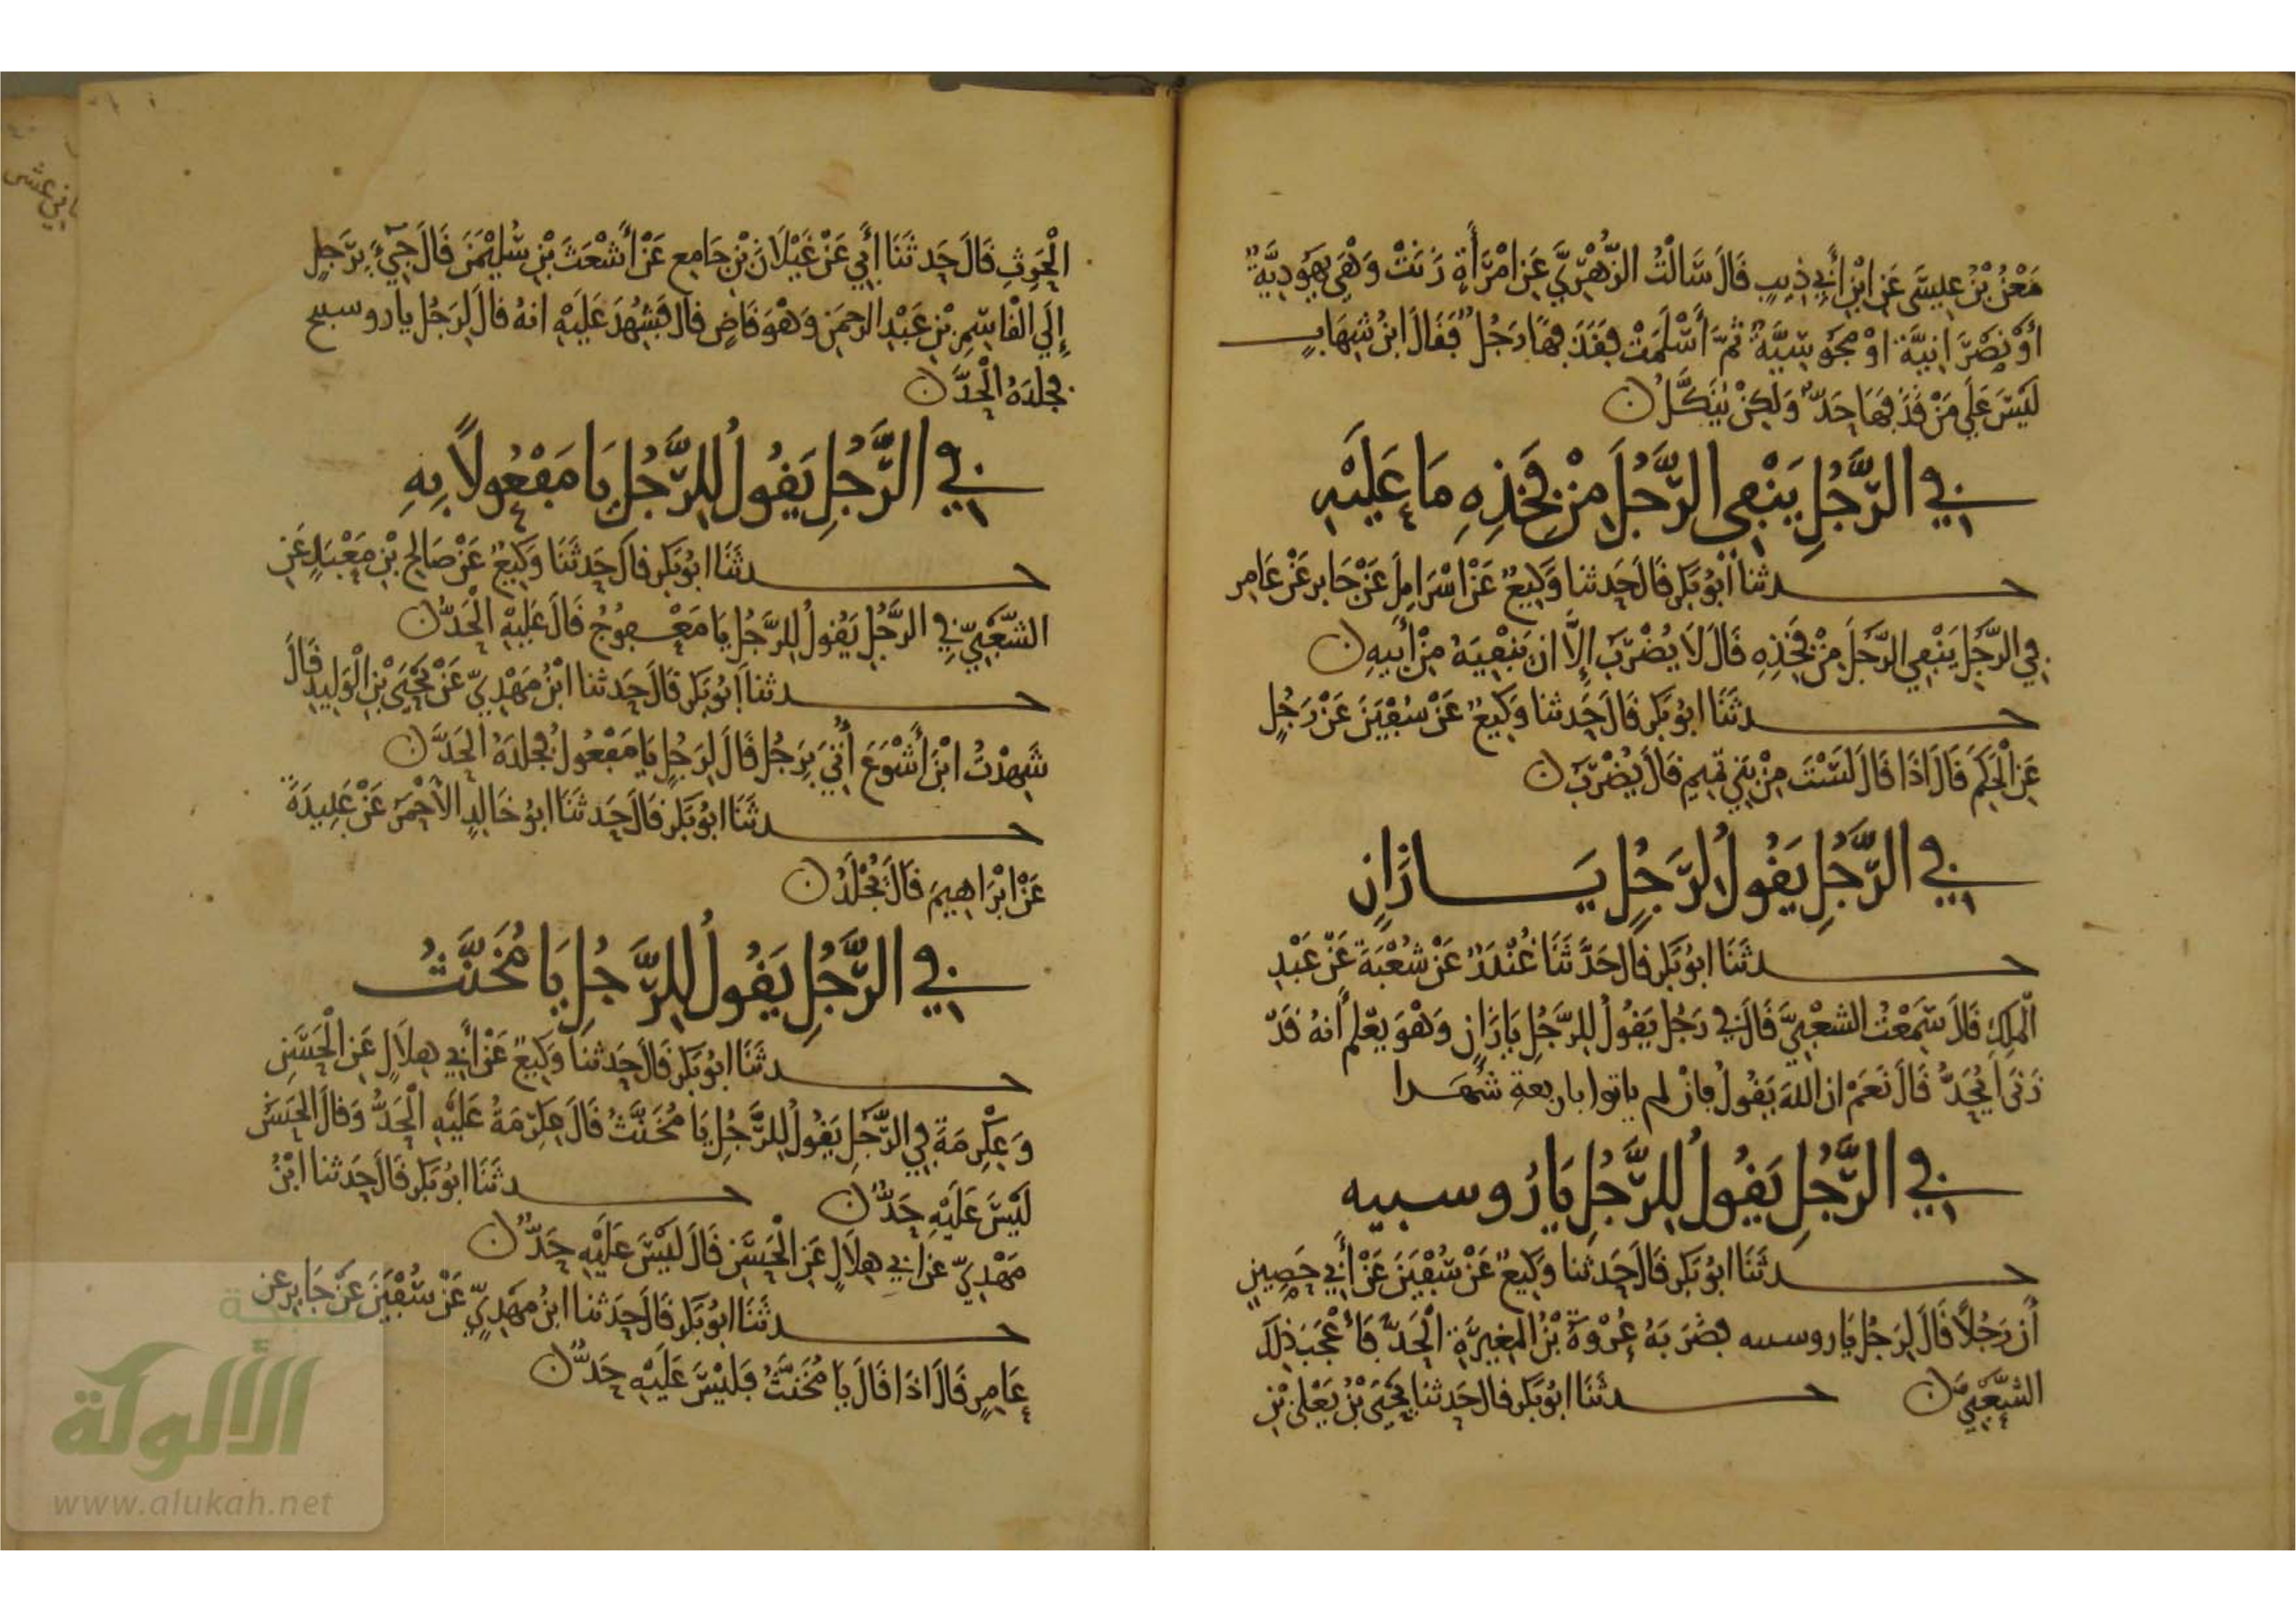 مَعْنُ بْنُ عِيسَى عَنِ ابْنِ أَبِي ذِيبٍ قَالَ سَالْتُ الزُّهْرِيَّ عَنِ امْرَأَةٍ زَنَتْ وَهْيَ يَهُودِيَّةٌ
أَوْ نَصْرَانِيَّة اوْ مجُوسِيَّةٌ ثُمَّ أَسْلَمَتْ فَقَذَفَهَا رَجُلٌ فَقَالَ ابْنُ شِهَابٍ
لَيْسَ عَلَى مَنْ قَذَفَهَا حَدٌّ وَلَكِنْ يُنَكَّلُ
فِي الرَّجُلِ يَنْفِي الرَّجُلَ مِنْ فَخِذِهِ مَا عَلَيْهِ
حدثنا أَبُو بَكْرٍ قَالَ حَدثنا وَكِيعٌ عَنْ اسْرَايِلَ عَنْ جَابِر عَنْ عَامِر
فِي الرَّجُلِ يَنْفِي الرَّجُلَ مِنْ فَخِذِهِ قَالَ لَا يُضْرَبُ إِلَّا ان يَنْفِيَهُ مِنْ أَبِيهِ
حدثَنَا ابُو بَكْر قَالَ حَدثنا وَكِيعٌ عَنْ سُفْيَنَ عَنْ رَجُلٍ
عَنِ الْحَكَمِ قَالَ اذَا قَالَ لَسْتَ مِنْ بَنِي تَمِيمٍ قَالَ يُضْرَبُ
فِي الرَّجُلِ يَقُولُ لِرَجُلٍ يَا زَانٍ
حدثَنَا ابُو بَكْر قَالَ حَدَّثَنَا غُنْدَرٌ عَنْ شُعْبَةَ عَنْ عَبْدِ
الْمَلِكِ قَالَ سَمِعْتُ الشعْبِيَّ قَالَ فِي رَجُلٍ يَقُولُ لِلرَّجُلِ يَا زَانٍ وَهْوَ يَعْلَم أَنهُ قَدْ
زَنَى أَيُحَدُّ قَالَ نَعَمْ ان اللهَ يَقُولُ فإنْ لم ياتوا باربعةِ شُهَدا
فِي الرَّجُلِ يَقُولُ لِلرَّجُلِ يَا رُوسبيه
حدثَنَا ابُو بَكْر قَالَ حَدثنا وَكِيعٌ عَنْ سُفْيَنَ عَنْ أَبِي حَصِينٍ
أَنْ رَجُلًا قَالَ لِرَجُلٍ يَا روسبيه فضَرَبَهُ عُرْوَةُ بْنُ المغِيرَةِ الْحَدَّ فَأَعْجَبَ ذلكَ
الشَّعْبِيَّ حدثَنَا ابُو بَكْر قال حَدثنا يَحْيَى بْنُ يَعْلَى بْنِ
الْحَرِثِ قَالَ حَدثَنَا أَبِي عَنْ غَيْلَانَ بْنِ جَامِع عَنْ أَشْعَثَ بْنِ سُلَيْمَنَ قَالَ جِيءَ بِرَجُلٍ
إِلَى الْقَاسِمِ بْنِ عَبْدِ الرحمَن وَهْوَ قَاضٍ قال فَشُهِدَ عَلَيْهِ انهُ قَالَ لِرَجُلٍ يا روسبيح
فجلدَهُ الْحَدَّ
فِي الرَّجُلِ يَقُولُ لِلرَّجُلِ يَا مَفْعُولًا بِهِ
حدثَنَا ابُو بَكْر قال حَدثَنَا وَكِيعٌ عَنْ صَالِح بْنِ مَعْبَدٍ عَنِ
الشَّعْبِيِّ فِي الرَّجُلِ يَقُولُ لِلرَّجُلِ يَا مَعْفُوجُ قَالَ عَلَيْهِ الْحَدُّ
حدثنا أَبُو بَكْر قَالَ حَدثنا ابْنُ مَهْدِيٍّ عَنْ يَحْيَى بْنِ الْوَلِيدِ قَالَ
شَهِدْتُ ابْنَ أَشْوَعَ أُتِيَ بِرَجُلٍ قَالَ لِرَجُلٍ يَا مَفْعُولُ فجلدَهُ الْحَدَّ
حدثَنَا ابُو بَكْر قَالَ حَدثَنَا ابُو خَالِدٍ الأَحْمَرُ عَنْ عَبِيدَةَ
عَنْ ابْرَاهِيمَ قَالَ يُجْلَدُ
فِي الرَّجُلِ يَقُولُ لِلرَّجُلِ يَا مُخَنَّثُ
حدثَنَا ابُو بَكْر قَالَ حَدثنا وَكِيعٌ عَنْ أَبِي هِلَالٍ عَنِ الْحَسَنِ
وَعِكْرِمَةَ فِي الرَّجُلِ يَقُولُ لِلرَّجُلِ يَا مُخَنَّثُ قَالَ عِكْرِمَةُ عَلَيْهِ الْحَدُّ وَقَالَ الْحَسَنُ
لَيْسَ عَلَيْهِ حَدٌّ حدثَنَا ابُو بَكْر قَالَ حَدثنا ابْنُ
مَهْدِيٍّ عَنْ أَبِي هِلَالٍ عَنِ الْحَسَنِ قَالَ لَيْسَ عَلَيْهِ حَدٌّ
حدثَنَا ابُو بَكْر قَالَ حَدثنا ابْنُ مَهْدِيٍّ عَنْ سُفْيَنَ عَنْ جَابِر عن
عَامِرٍ قَالَ اذَا قَالَ يَا مُخَنَّثُ فَلَيْسَ عَلَيْهِ حَدٌّ
الألوكة
www.alukah.net